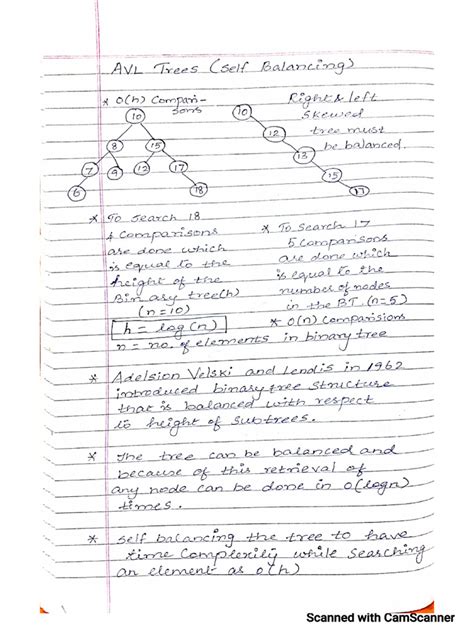 AVL Trees (Self Balancing)
* O(h) Compari-
sons
10
8
15
7
9
12
17
6
18
Right & left
skewed
tree must
be balanced.
10
12
13
15
17
* To Search 18
4 Comparisons
are done which
is equal to the
height of the
Binary tree(h)
(n=10)
h = log(n)
n = no. of elements in binary tree
* To Search 17
5 Comparisons
are done which
is equal to the
number of nodes
in the BT (n=5)
* O(n) Comparisions
* Adelsion Velski and Lendis in 1962
introduced binary tree structure
that is balanced with respect
to height of subtrees.
* The tree can be balanced and
because of this retrieval of
any node can be done in O(logn)
times.
* Self balancing the tree to have
time Complexity while Searching
an element as O(h)
Scanned with CamScanner